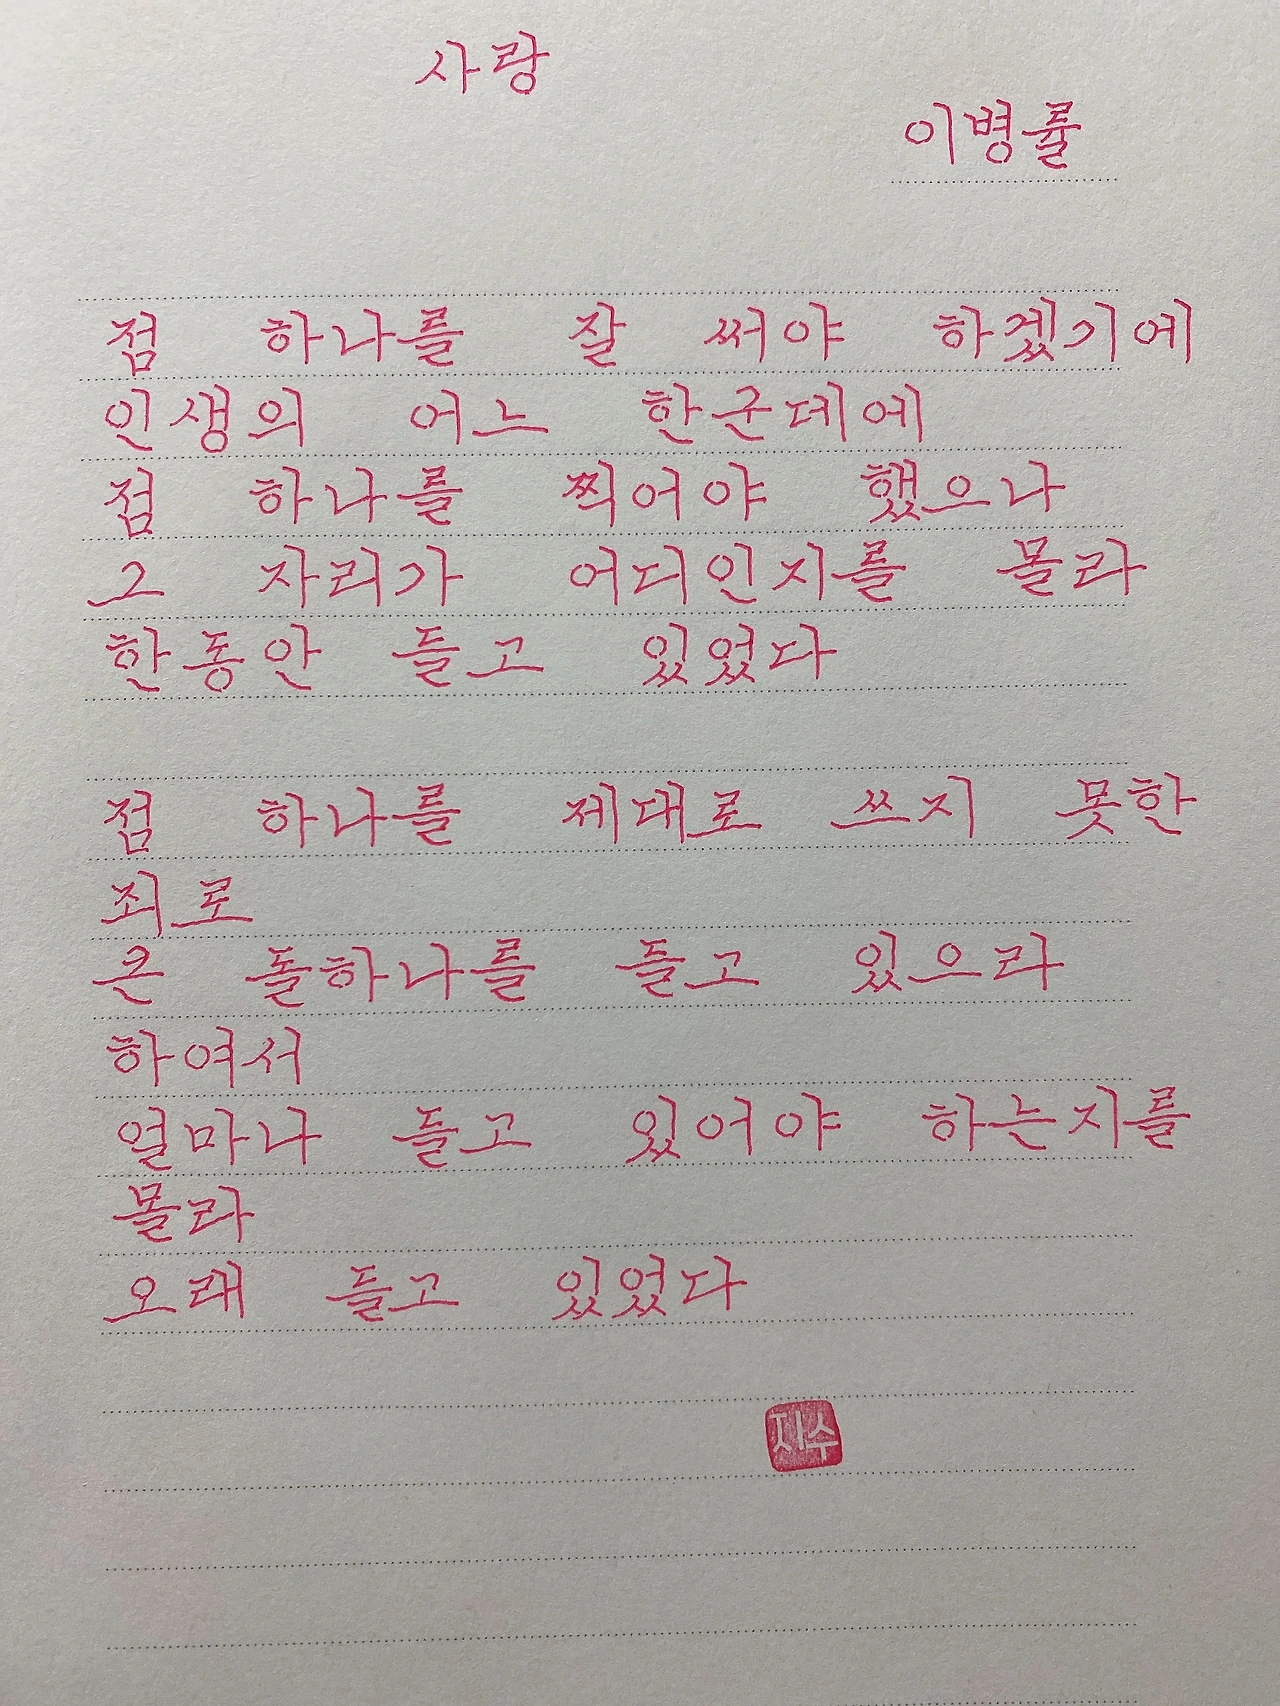 사랑
이병률
점 하나를 잘 써야 하겠기에
인생의 어느 한군데에
점 하나를 찍어야 했으나
그 자리가 어디인지를 몰라
한동안 들고 있었다
점 하나를 제대로 쓰지 못한
죄로
큰 돌하나를 들고 있으라
하여서
얼마나 들고 있어야 하는지를
몰라
오래 들고 있었다
지수